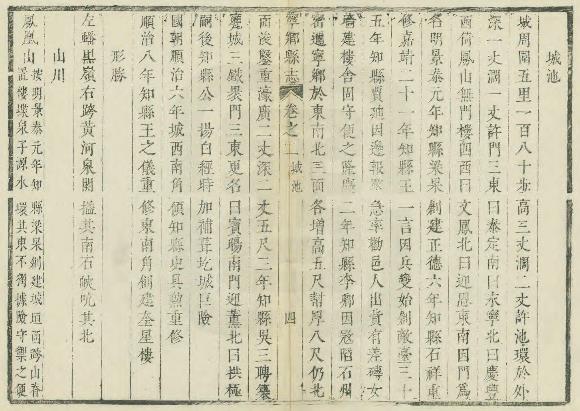 城池
城周圍五里一百八十步高三丈濶二丈許池環於外
深一丈濶一丈許門三東曰泰定南曰永寧北曰慶豐
西倚鳳山無門樓西曰文鳳北曰迎恩東南因門爲
名明景泰元年知縣梁杲創建正德六年知縣石祥重
修嘉靖二十一年知縣一言因兵變始創敵臺三十
五年知縣賈因邊報緊急率勸邑人出貲有差磚女
墻建樓舍固守便之隆慶二年知縣李鄉因寇陷石州
密邇寧鄉於東南北三面各增高五尺幇厚八尺仍北
寧鄉縣志 卷之一 城池 四
面浚鑿重濠廣二丈深二丈五尺三年知縣吳三聘築
甕城三鐵裹門三東更名曰賓暘南門迎薰北曰拱極
嗣後知縣公一揚白經時加補葺圪城巨險
國朝順治六年城西南角傾知縣史具勲重修
順治八年知縣王之儀重修東南角創建奎星樓
形勝
左蟠其嶺右跨黃河泉關搤其南石峽吭其北
山川
鳳凰山
按明景泰元年知縣梁杲創建城垣西跨山脊
置樓堞泉子源水環其東不獨據險守禦之便